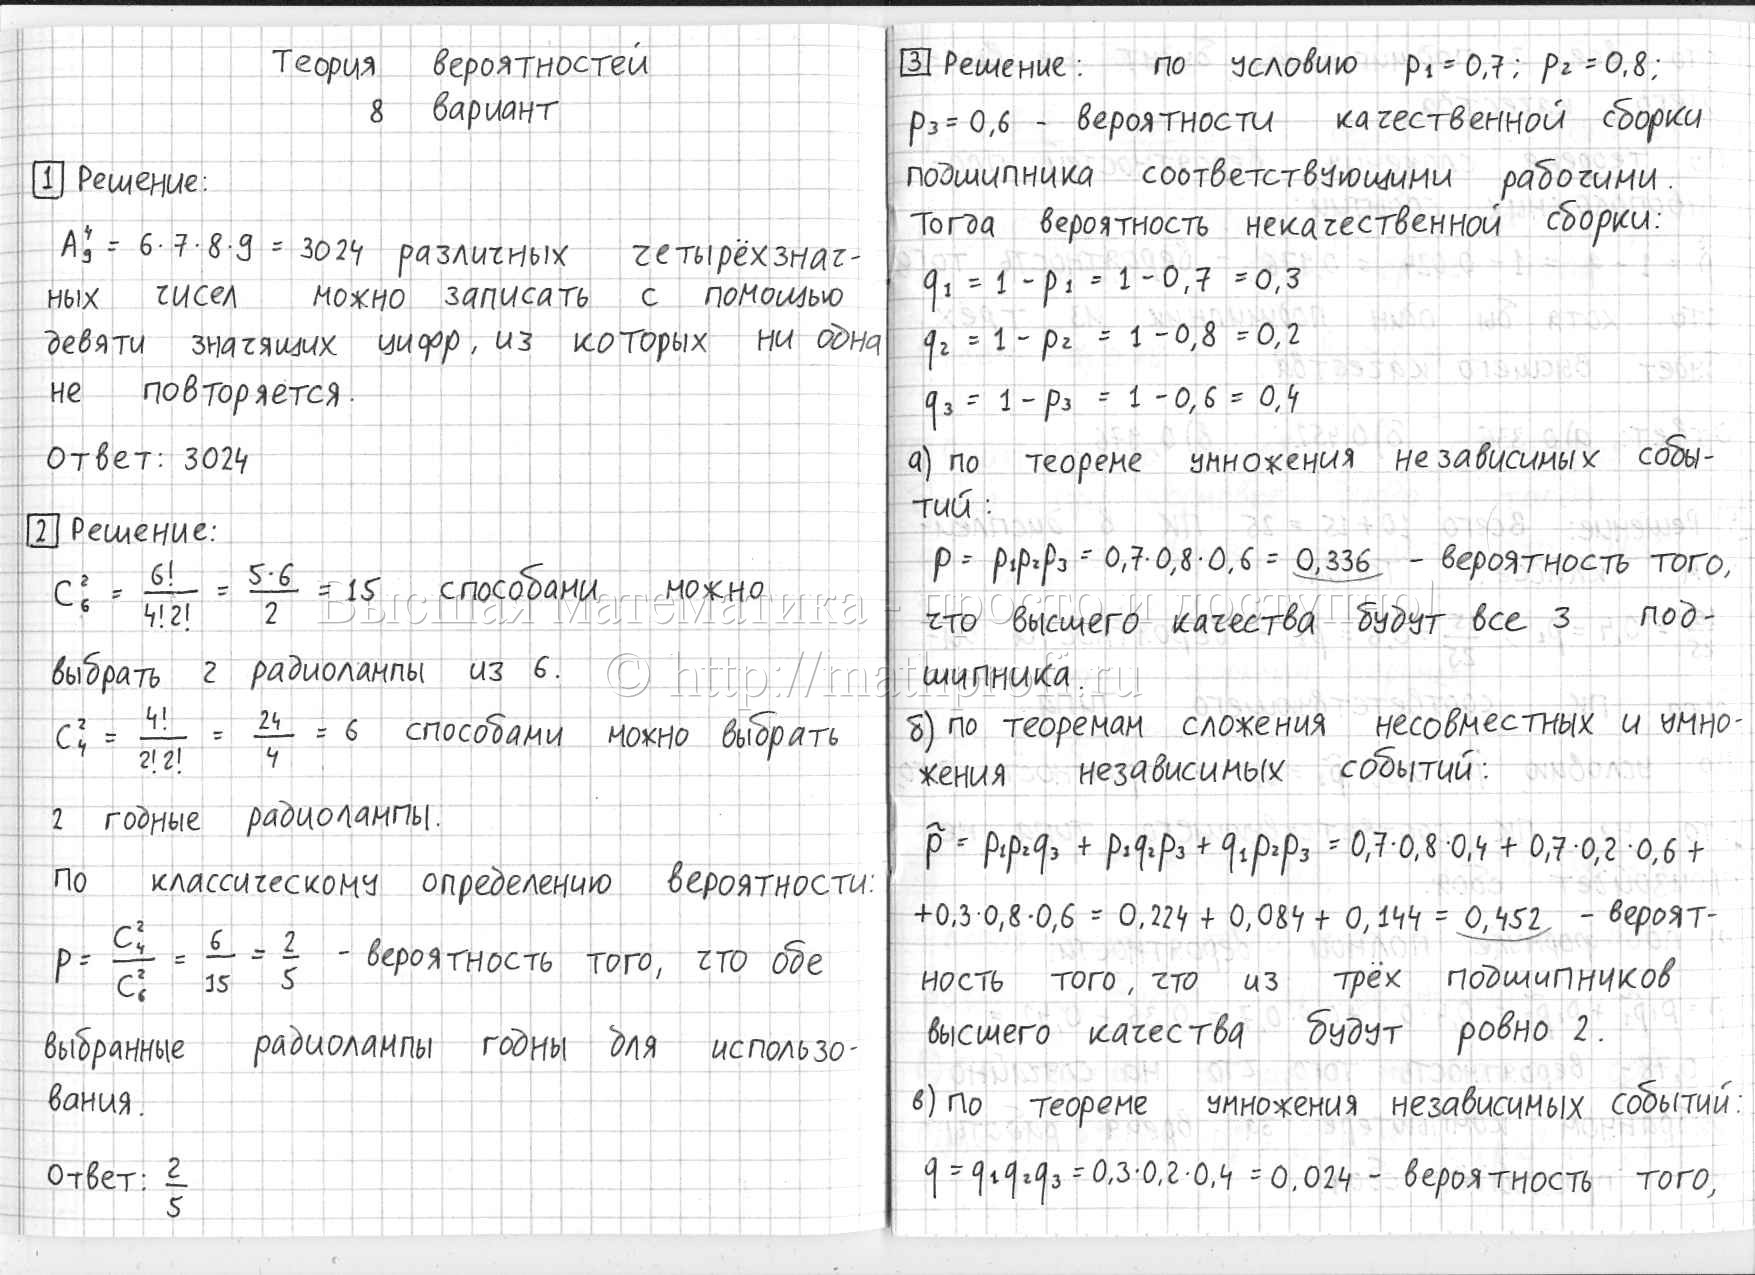 Теория вероятностей
8 вариант
1 Решение:
A₉⁴ = 6·7·8·9 = 3024 различных четырёхзнач-
ных чисел можно записать с помощью
девяти значящих цифр, из которых ни одна
не повторяется.
Ответ: 3024
2 Решение:
C₆² = 6!/4!2! = 5·6/2 = 15 способами можно
выбрать 2 радиолампы из 6.
C₄² = 4!/2!2! = 24/4 = 6 способами можно выбрать
2 годные радиолампы.
По классическому определению вероятности:
p = C₄²/C₆² = 6/15 = 2/5 - вероятность того, что обе
выбранные радиолампы годны для использо-
вания.
Ответ: 2/5
3 Решение: по условию p₁ = 0,7; p₂ = 0,8;
p₃ = 0,6 - вероятности качественной сборки
подшипника соответствующими рабочими.
Тогда вероятность некачественной сборки:
q₁ = 1 - p₁ = 1 - 0,7 = 0,3
q₂ = 1 - p₂ = 1 - 0,8 = 0,2
q₃ = 1 - p₃ = 1 - 0,6 = 0,4
а) по теореме умножения независимых собы-
тий:
p = p₁p₂p₃ = 0,7·0,8·0,6 = 0,336 - вероятность того,
что высшего качества будут все 3 под-
шипника.
б) по теоремам сложения несовместных и умно-
жения независимых событий:
p̃ = p₁p₂q₃ + p₁q₂p₃ + q₁p₂p₃ = 0,7·0,8·0,4 + 0,7·0,2·0,6 +
+0,3·0,8·0,6 = 0,224 + 0,084 + 0,144 = 0,452 - вероят-
ность того, что из трёх подшипников
высшего качества будут ровно 2.
в) по теореме умножения независимых событий:
q = q₁q₂q₃ = 0,3·0,2·0,4 = 0,024 - вероятность того,
Высшая математика - просто и доступно!
© http://mathprofi.ru